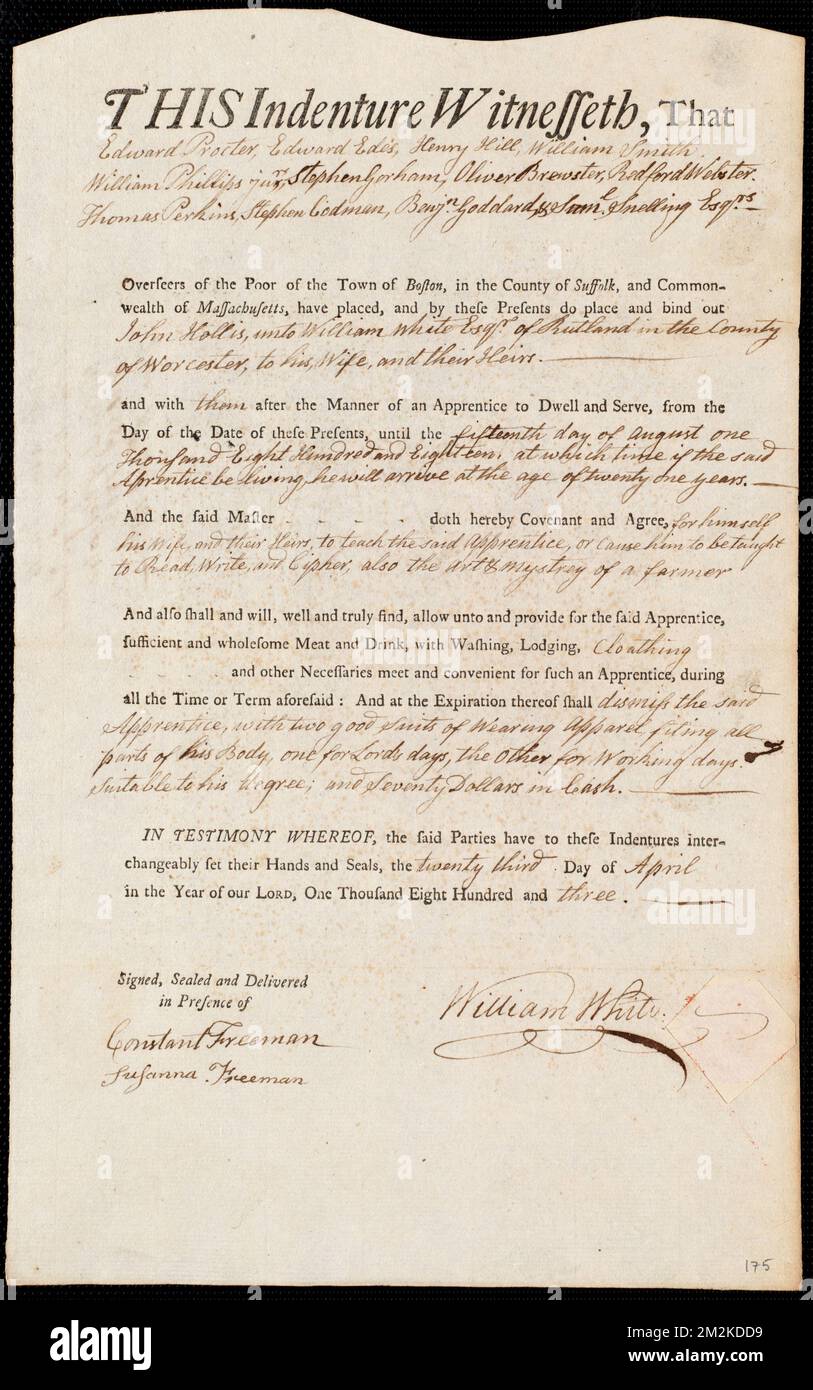 THIS Indenture Witneſſeth, That
Edward Procter, Edward Edes, Henry Hill, William Smith,
William Phillips junr, Stephen Gorham, Oliver Brewster, Redford Webster.
Thomas Perkins, Stephen Codman, Benjn Goddard, & Saml. Snelling Esqrs
Overſeers of the Poor of the Town of Boſton, in the County of Suffolk, and Common-
wealth of Maſſachuſetts, have placed, and by theſe Preſents do place and bind out
John Hollis, unto William White Esqr. of Rutland in the County
of Worcester, to his, Wife, and their Heirs.
and with them after the Manner of an Apprentice to Dwell and Serve, from the
Day of the Date of theſe Preſents, until the fifteenth day of August one
Thousand Eight Hundred and Eighteen, at which time if the said
Aprentice be living, he will arrive at the age of twenty one years.
And the ſaid Maſter - - - - doth hereby Covenant and Agree, for himself
his Wife, and their Heirs, to teach the said Apprentice, or Cause him to be taught
to Read, Write, and Cypher; also the Art & mystrey of a farmer
And alſo ſhall and will, well and truly find, allow unto and provide for the ſaid Apprentice,
ſufficient and wholeſome Meat and Drink, with Waſhing, Lodging, Cloathing
- - - - and other Neceſſaries meet and convenient for ſuch an Apprentice, during
all the Time or Term aforeſaid : And at the Expiration thereof ſhall dismiſs the said
Apprentice, with two good Suits of Wearing Apparel, fiting all
parts of his Body, one for Lords days, the Other for Working days.
Suitable to his Degree; and Seventy Dollars in Cash.
IN TESTIMONY WHEREOF, the ſaid Parties have to theſe Indentures inter-
changeably ſet their Hands and Seals, the twenty third . Day of April
in the Year of our LORD, One Thouſand Eight Hundred and three.
Signed, Sealed and Delivered
in Preſence of
William White.
Constant Freeman
Suſanna Freeman
175
alamy
alamy
Image ID: 2M2KDD9
www.alamy.com